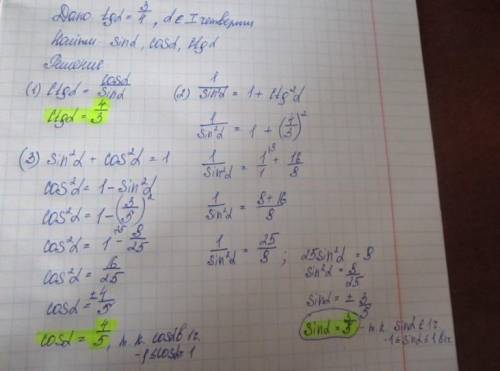 Дано tgα = 3/4, α ∈ I четверти
Найти sinα, cosα, ctgα
Решение
(1) ctgα = cosα/sinα
ctgα = 4/3
(2) 1/sin²α = 1 + ctg²α
1/sin²α = 1 + (4/3)²
1/sin²α = 1/1 + 16/9
1/sin²α = 9+16/9
1/sin²α = 25/9 ; 25sin²α = 9
sin²α = 9/25
sinα = ± 3/5
sinα = 3/5 - т.к. sinα в 1ч.
-1≤sinα≤1
(3) sin²α + cos²α = 1
cos²α = 1 - sin²α
cos²α = 1 - (3/5)²
cos²α = 1 - 9/25
cos²α = 16/25
cosα = ±4/5
cosα = 4/5, т.к. cosα в 1ч.
-1≤cosα≤1